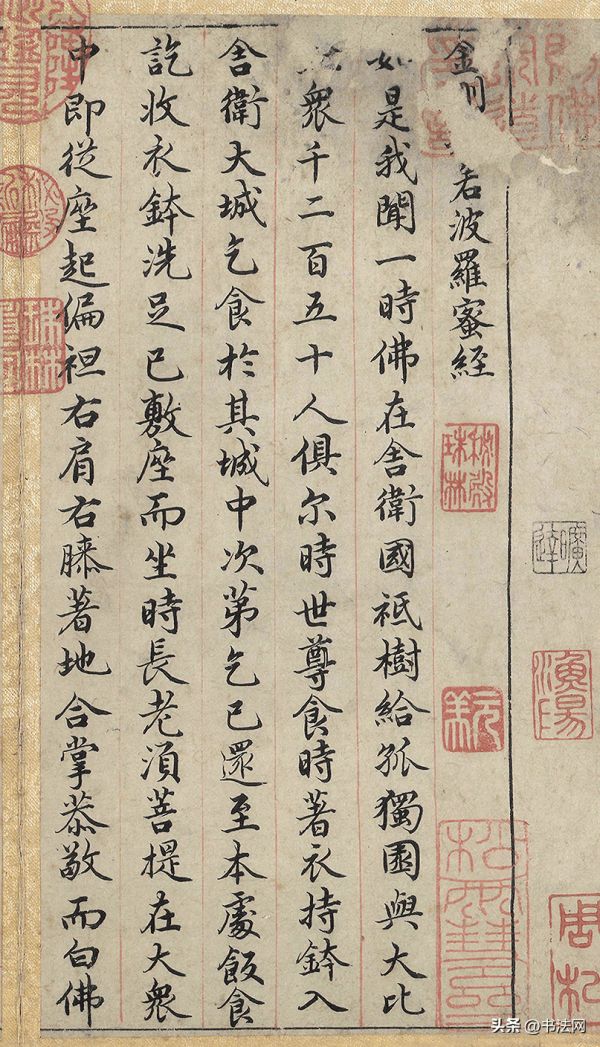 金 若波羅蜜經
如是我聞一時佛在舍衛國祇樹給孤獨園與大比
衆千二百五十人俱尔時世尊食時著衣持鉢入
舍衛大城乞食於其城中次第乞已還至本處飯食
訖收衣鉢洗足已敷座而坐時長老湏菩提在大衆
中即從座起偏袒右肩右膝著地合掌恭敬而白佛
曠達
漁陽
秘殿珠林
头条 @书法网